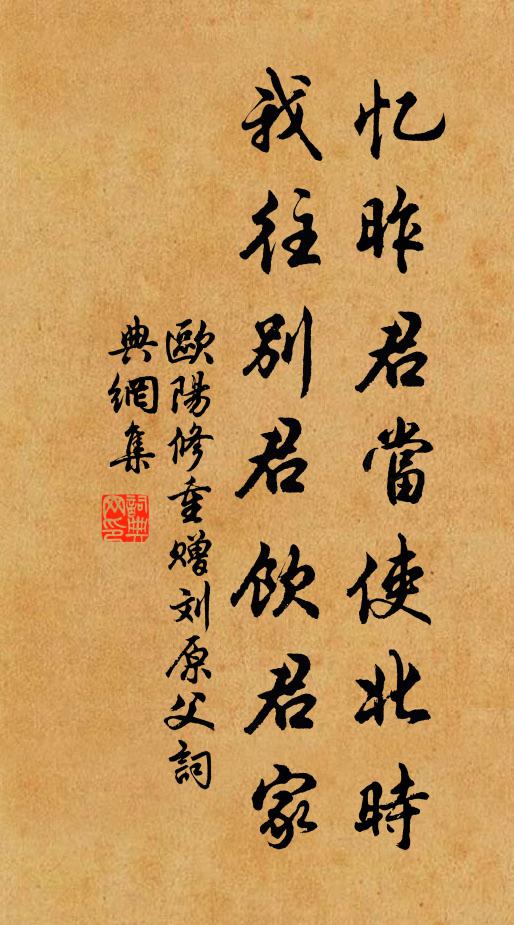 忆昨君當使北時
我往别君飲君家
歐陽修重赠刘原父詞
典網集
詞典網印